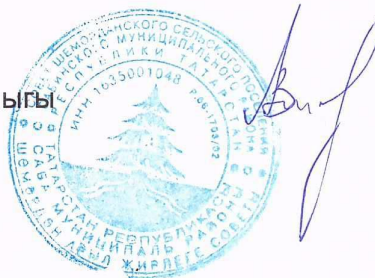 ыгы
СОВЕТ ШЕМОРДАНСКОГО СЕЛЬСКОГО ПОСЕЛЕНИЯ
САБИНСКОГО МУНИЦИПАЛЬНОГО РАЙОНА
РЕСПУБЛИКИ ТАТАРСТАН
ИНН 1635001048
ТАТАРСТАН РЕСПУБЛИКАСЫ
САБА МУНИЦИПАЛЬ РАЙОНЫ
ШЕМӘРДӘН АВЫЛ ҖИРЛЕГЕ СОВЕТЫ